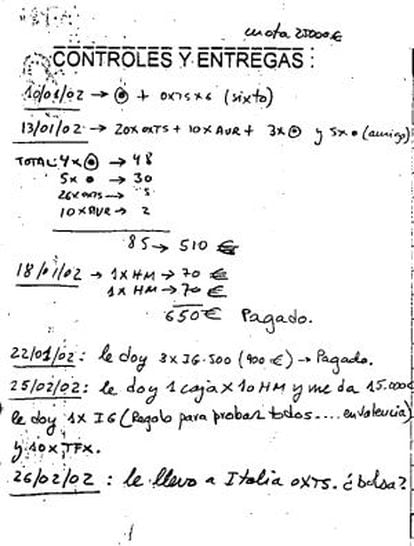 nota 25000€
CONTROLES Y ENTREGAS :
10/01/02 → ⊙ + OXTS x 6 (sixto)
13/01/02 → 20x OXTS + 10 x AUR + 3x ⊙ y 5x • (amigo)
TOTAL: 4x ⊙ → 48
5x • → 30
26x OXTS → 5
10 x AUR → 2
85 → 510 €
18/01/02 → 1 x HM → 70 €
1 x HM → 70 €
650 € Pagado.
22/01/02: le doy 3 x IG·500 (900 €) → Pagado.
25/02/02: le doy 1 caja x 10 HM y me da 15.000€
le doy 1x IG (Regalo para probar todos .... en valencia)
y 10x TFX.
26/02/02 : le llevo a Italia OXTS. ¿bolsa?